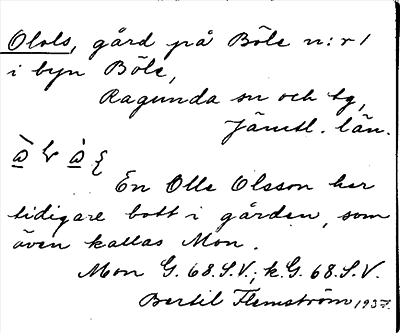 Olols, gård på Böle n:r 1
i byn Böle,
Ragunda sn och tg,
Jämtl. län.
En Olle Olsson har
tidigare bott i gården, som
även kallas Mon.
Mon G. 68.S.V.; k.G. 68.S.V.
Bertil Flemström 1937.